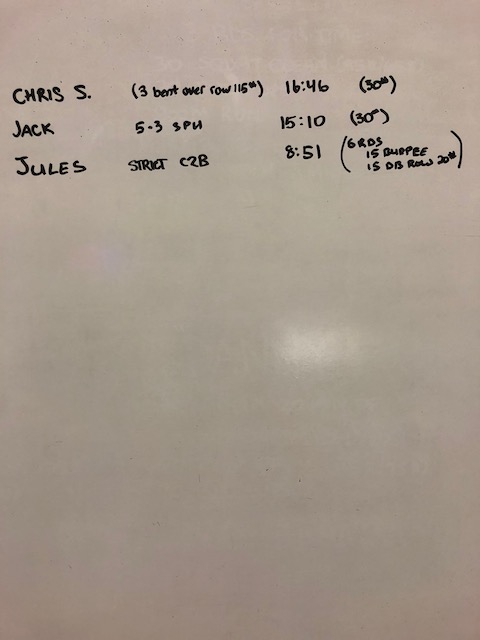 CHRIS S. (3 bent over row 115#) 16:46 (30#)
JACK 5-3 SPU 15:10 (30#)
JULES STRICT C2B 8:51 (6 RDS
15 BURPEE
15 DB ROW 20#)